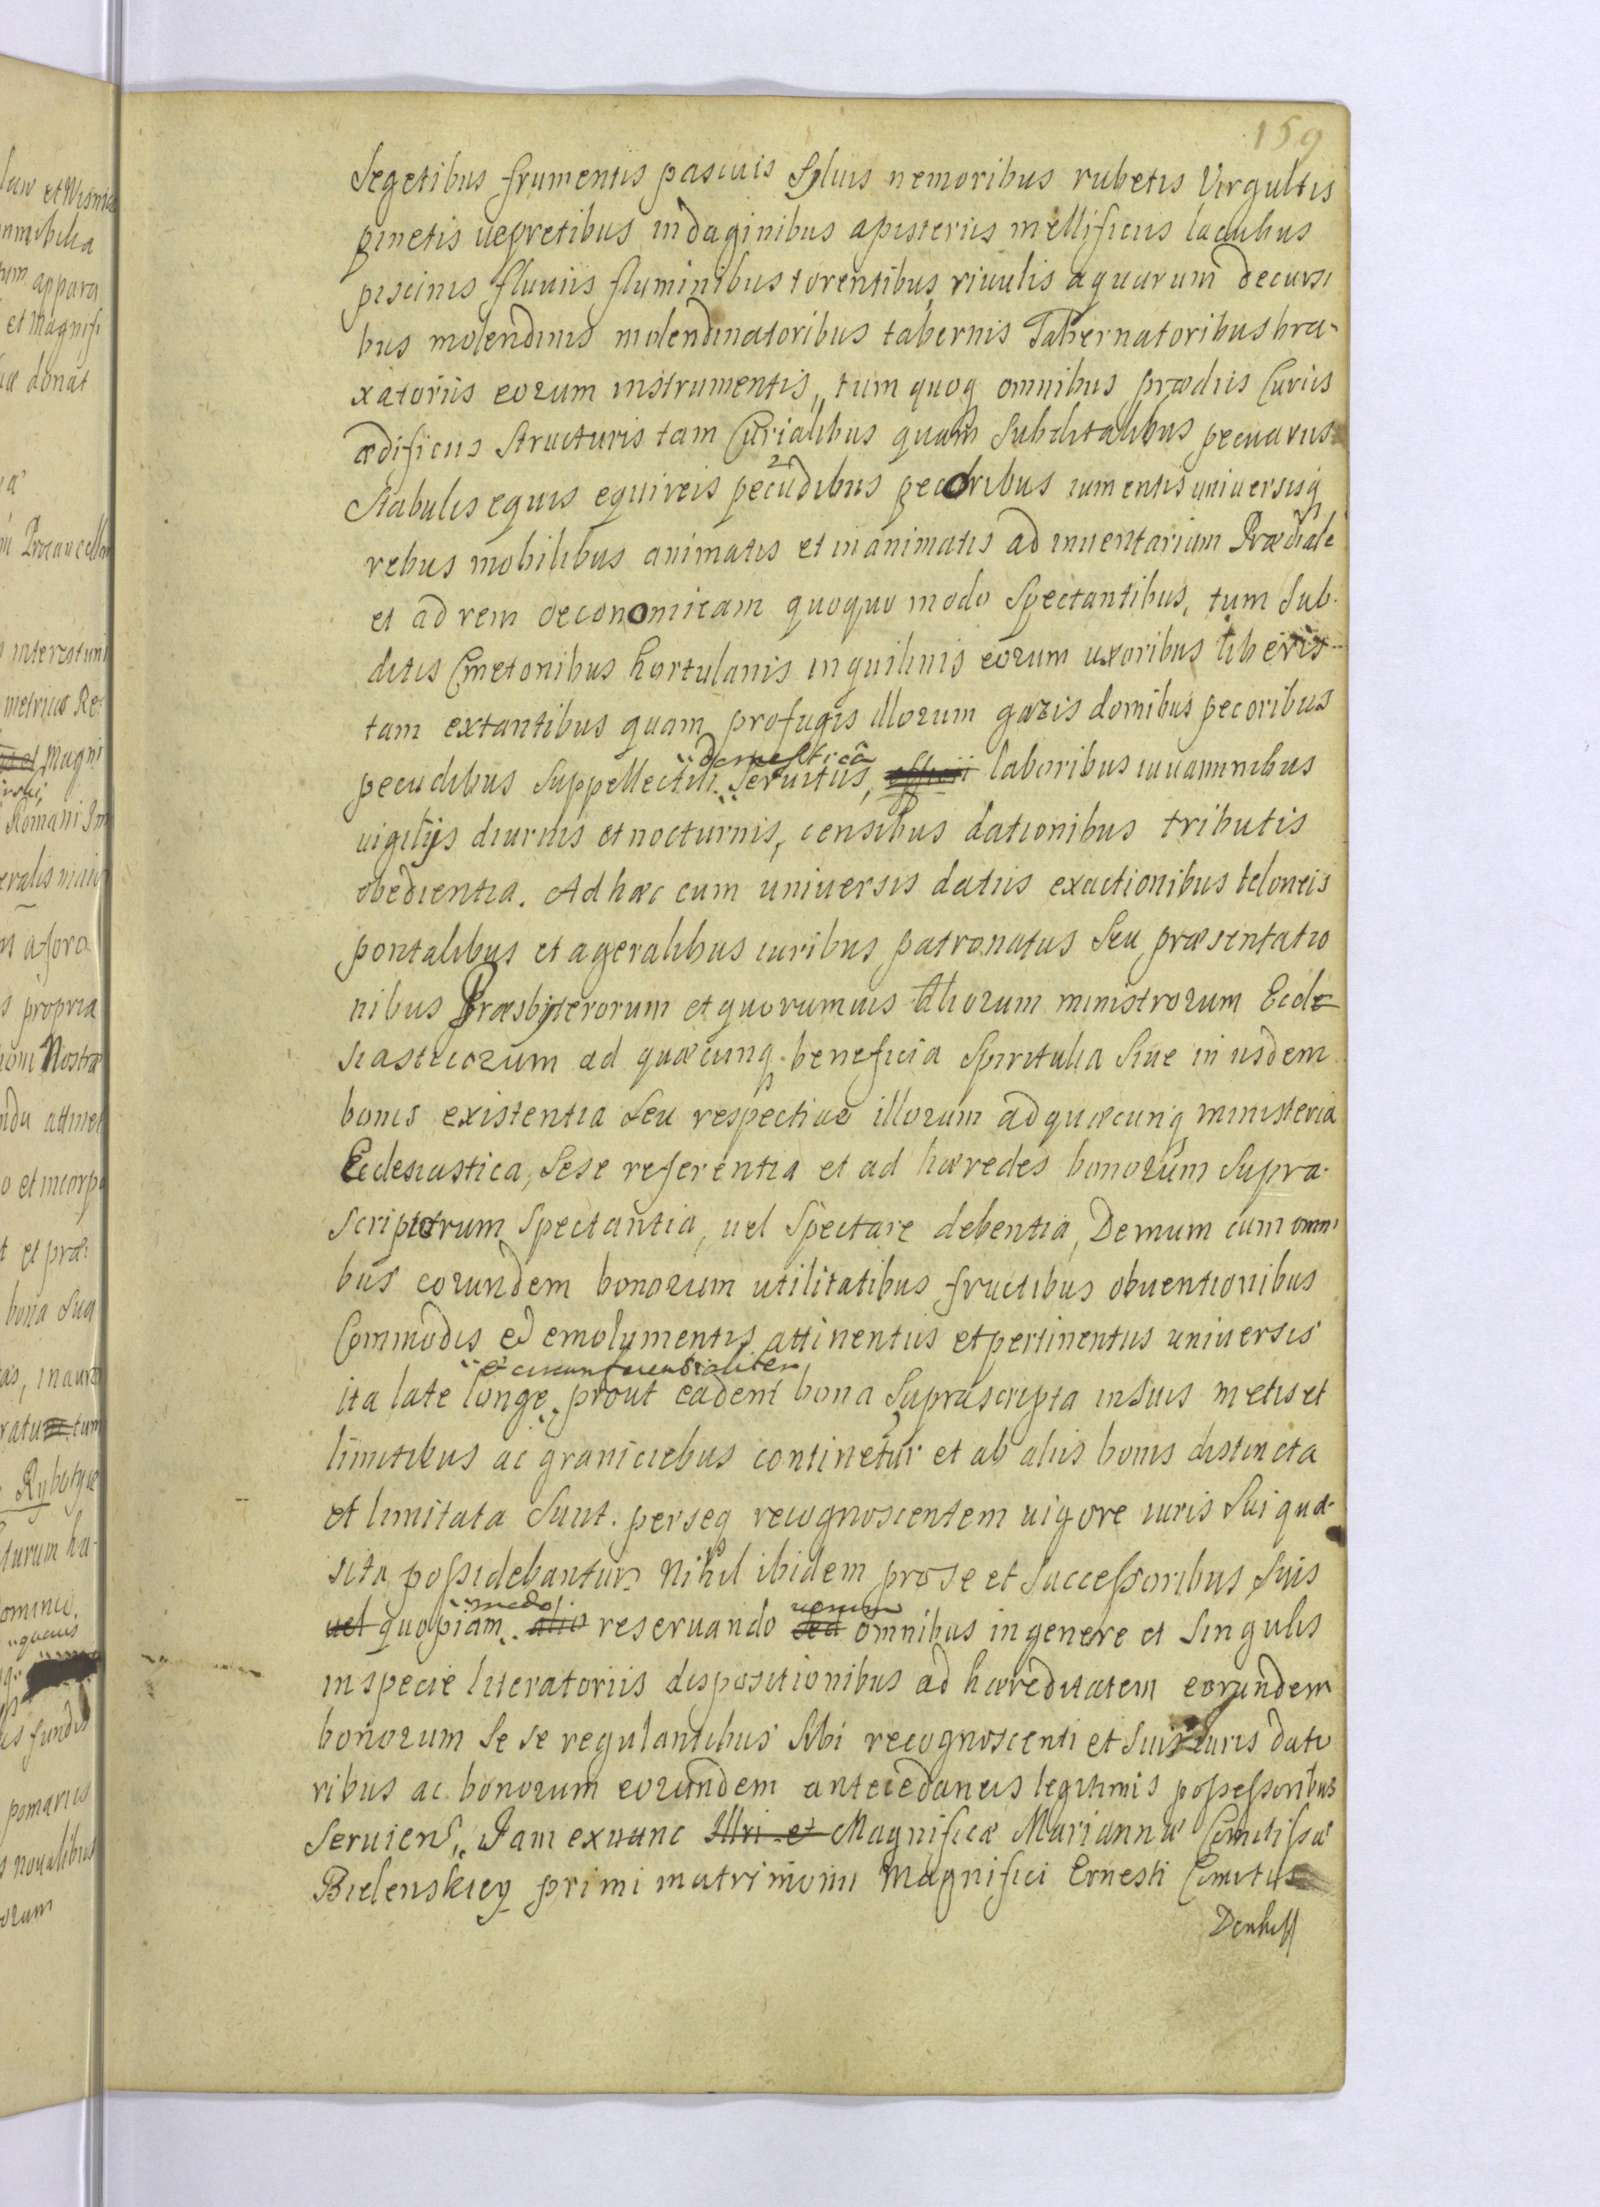 159
Segetibus frumentis pascuis Syluis nemoribus rubetis Virgultis
pinetis uepretibus indaginibus apisteriis mellificiis lacubus
piscinis fluuiis fluminibus torentibus riuulis aquarum decursi
bus molendinis molendinatoribus tabernis Tabernatoribus bra-
xatoriis eorum instrumentis, tum quoq omnibus prædiis Curiis
ædificiis Structuris tam Curialibus quam Subditalibus pecuariis
Stabulis equis equireis pecudibus pecoribus iumentis uniuersisq
rebus mobilibus animatis et inanimatis ad inuentarium Prædiale
et ad rem oeconomicam quoquo modo Spectantibus, tum Sub-
ditis Cmetonibus hortulanis inquilinis eorum uxoribus liberis
tam extantibus quam profugis illorum gazis domibus pecoribus
domestica
pecudibus Suppellectili Seruitiis, laboribus iuuaminibus
uigilijs diurnis et nocturnis, censibus dationibus tributis
obedientia. Ad hæc cum uniuersis datiis exactionibus teloneis
pontalibus et ageralibus iuribus patronatus Seu præsentatio
nibus Præsbyterorum et quorumuis aliorum ministrorum Eccle
siasticorum ad quæcunq beneficia Spiritulia Siue in iisdem
bonis existentia Seu respectiue illorum ad quæcunq ministeria
Ecclesiastica, Sese referentia et ad hæredes bonorum Supra-
scriptorum Spectantia, uel Spectare debentia, Demum cum omni
bus eorundem bonorum utilitatibus fructibus obuentionibus
Commodis et emolumentis attinentiis et pertinentiis uniuersis
et circumferentialiter
ita late longe prout eadem bona Suprascripta in Suis metis et
limitibus ac graniciebus continetur et ab aliis bonis distincta
et limitata Sunt. perseq recognoscentem uigore iuris Sui quæ-
sita possidebantur Nihil ibidem pro se et Successoribus Suis
modo uerum
uel quopiam alio reseruando sed omnibus in genere et Singulis
in specie literatoriis dispositionibus ad hæreditatem eorundem
bonorum Se se regulantibus Sibi recognoscenti et Suis iuris dato
ribus ac bonorum eorundem antecedaneis legitimis possessoribus
Seruien, Jam exnunc Illri et Magnificæ Mariannæ Comitissæ
Bielenskiey primi matrimonii Magnifici Ernesti Comitis
Denhoff